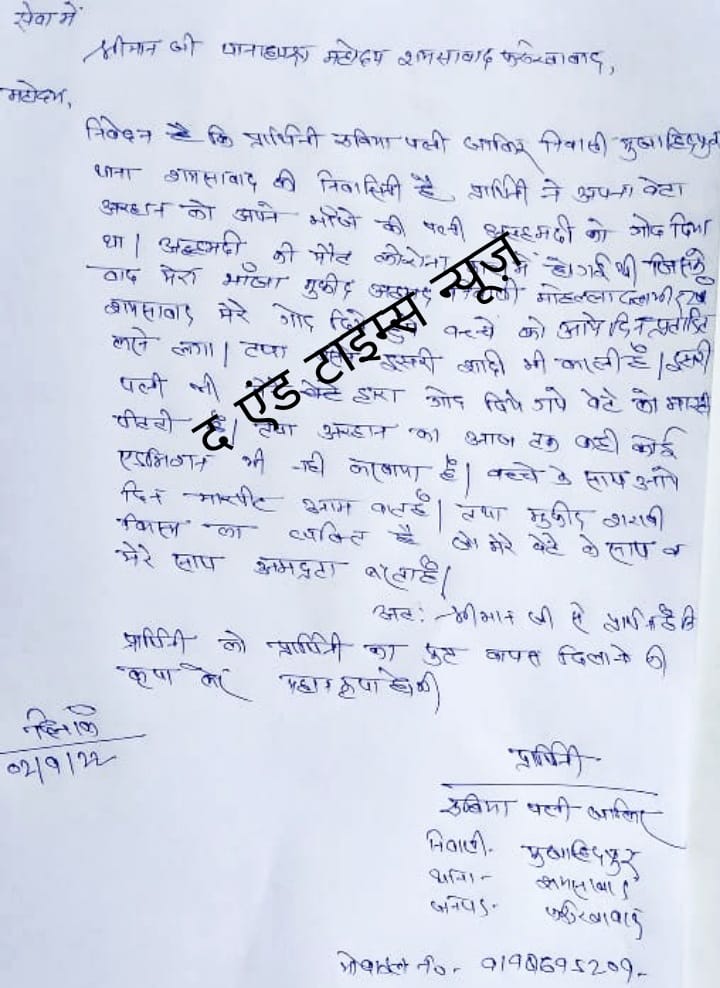 सेवा में
श्रीमान जी थानाध्यक्ष महोदय शमसाबाद फर्रुखाबाद,
महोदय,
निवेदन है कि प्रार्थिनी रुबिया पत्नी जाकिर निवासी मुजाहिदपुर
थाना शमसाबाद की निवासिनी है, प्रार्थिनी ने अपना बेटा
अरहान को अपने भांजे की पत्नी अहमदी को गोद दिया
था। अहमदी की मौत कोरोना में हो गई थी जिसके
बाद मेरा भांजा मुफीद मोहल्ला
शमसाबाद मेरे गोद बच्चे को आये दिन प्रताडित
करने लगा। तथा दूसरी शादी भी करली है। दूसरी
पत्नी भी द्वारा गोद लिये गये बेटे को मारती
पीटती है। तथा अरहान का आज तक कही कोई
एडमिशन भी नही करवाया है। बच्चे के साथ आये
दिन मारपीट आम बात है। तथा मुफीद शराबी
किस्म का व्यक्ति है जो मेरे बेटे के साथ व
मेरे साथ अभद्रता करता है।
अतः श्रीमान जी से प्रार्थना है कि
प्रार्थिनी को प्रार्थिनी का पुत्र वापस दिलाने की
कृपा करें महान कृपा होगी
दिनांक
02/9/22
प्रार्थिनी
रुबिया पत्नी जाकिर
निवासी- मुजाहिदपुर
थाना- शमसाबाद
जनपद- फर्रुखाबाद
मोबाइल नं०-
द एंड टाइम्स न्यूज़